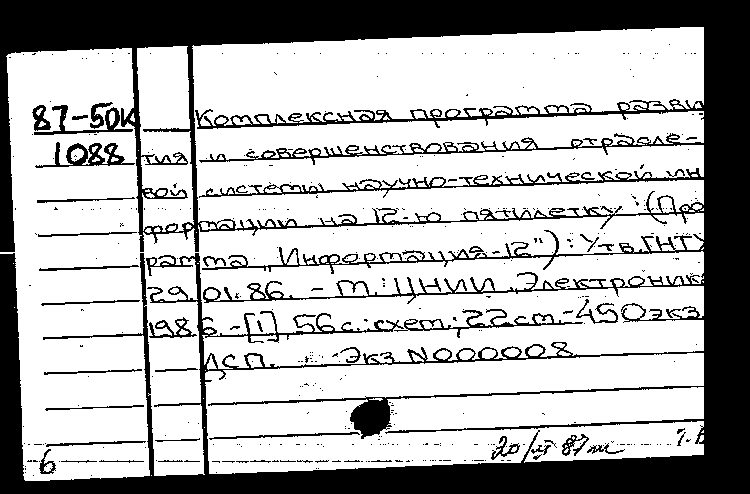 87-50К Комплексная программа разви
1088 тия и совершенствования отрасле-
вой системы научно-технической ин
формации на 12-ю пятилетку : (Про
рамма „Информация-12") : Утв. ГНТУ
29.01.86. - М. : ЦНИИ „Электроник
1986. - [1], 56 с. : схем.; 22 см. - 450 экз.
ДСП. Экз N000008
6 20/ 87